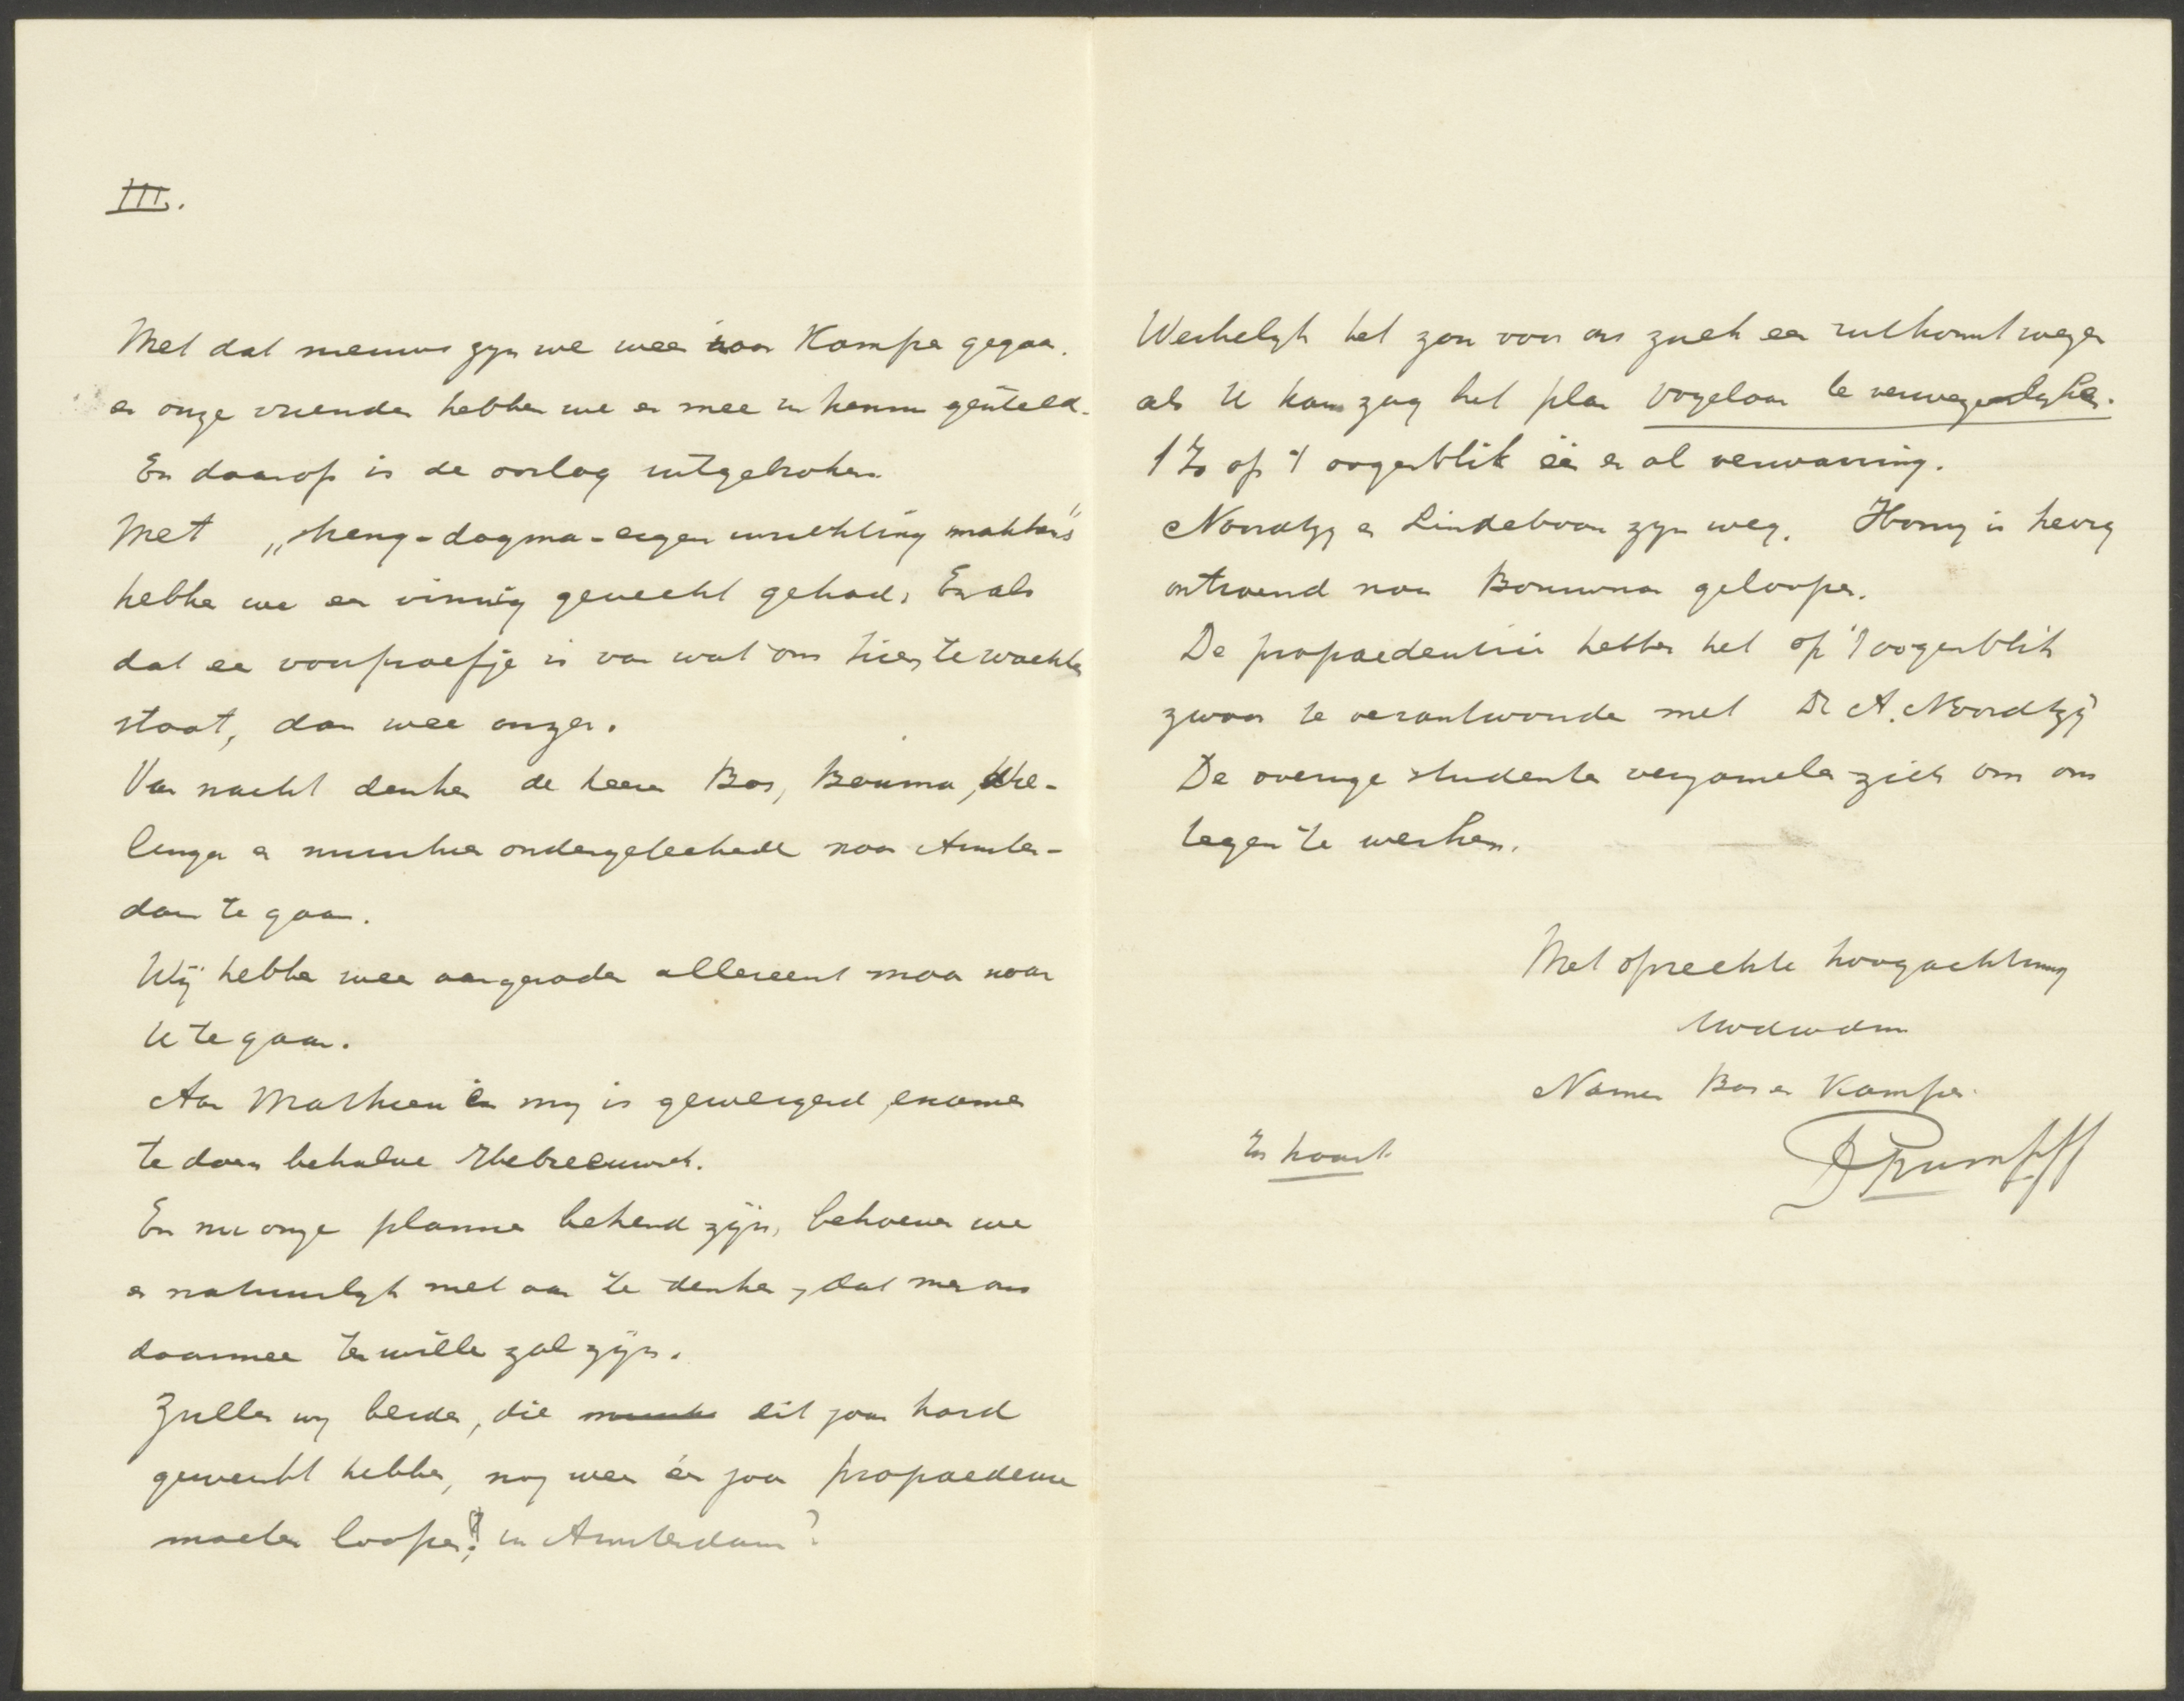 III.
Met dat nieuws zyn we weer naar Kampen gegaan.
en onze vrienden hebben we er mee in kennis gesteld.
En daarop is de oorlog uitgebroken.
Met „streng-dogma-eigen inrichting makkers"
hebben we een vinnig gevecht gehad, En als
dat een voorproefje is van wat ons hier te wachten
staat, dan wee onzer.
Van nacht denken de heeren Bos, Bouma, Wie-
lenga en ondergeteekende naar Amster-
dam te gaan.
Wij hebben weer aangeraden allereerst maar naar
U te gaan.
Aan Mathieu en my is geweigerd examen
te doen behalve Hebreeuwsch.
En nu onze plannen bekend zijn, behoeven we
er natuurlyk niet aan te denken, dat men ons
daarmee ter wille zal zijn.
Zullen wy beiden, die dit jaar hard
gewerkt hebben, nog weer één jaar propaedeuse
moeten loopen? in Amsterdam?
Werkelyk het zou voor ons zulk een uitkomst wezen
als U kans zag het plan Vogelaar te verwezenlyken.
't Is op 't oogenblik één en al verwarring.
Noordtzy en Lindeboom zyn weg. Honig is hevig
ontroerd naar Bouwman geloopen.
De propaedeutici hebben het op 't oogenblik
zwaar te verantwoorden met Dr A. Noordtzij
De overige studenten verzamelen zich om ons
tegen te werken.
Met oprechte hoogachting
Uwdwdnr
Namens Bos en Kampen
In haast.
Rumpff